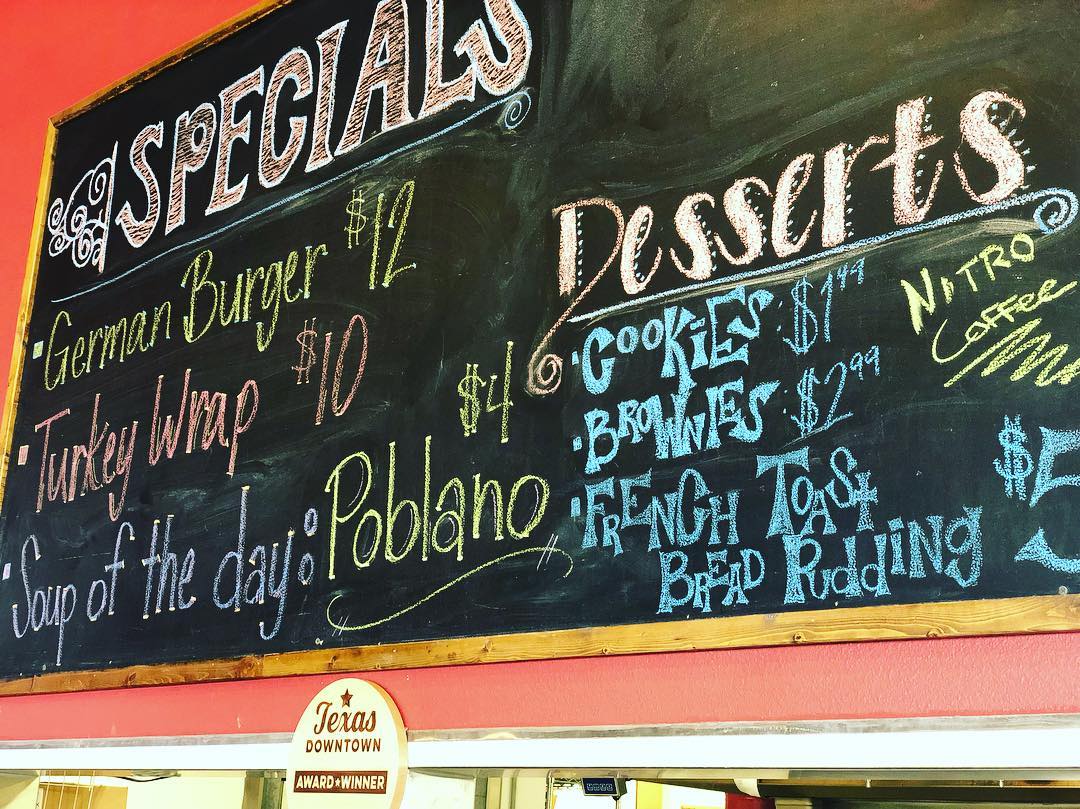 SPECIALS
German Burger $12
Turkey Wrap $10
$4
Soup of the day: Poblano
Desserts
COOKiES $1.49
BROWNIES $2.99
FRENCH TOASt $5
BREAD PuddiNg
NiTRO
Coffee
Texas
DOWNTOWN
AWARD★WINNER